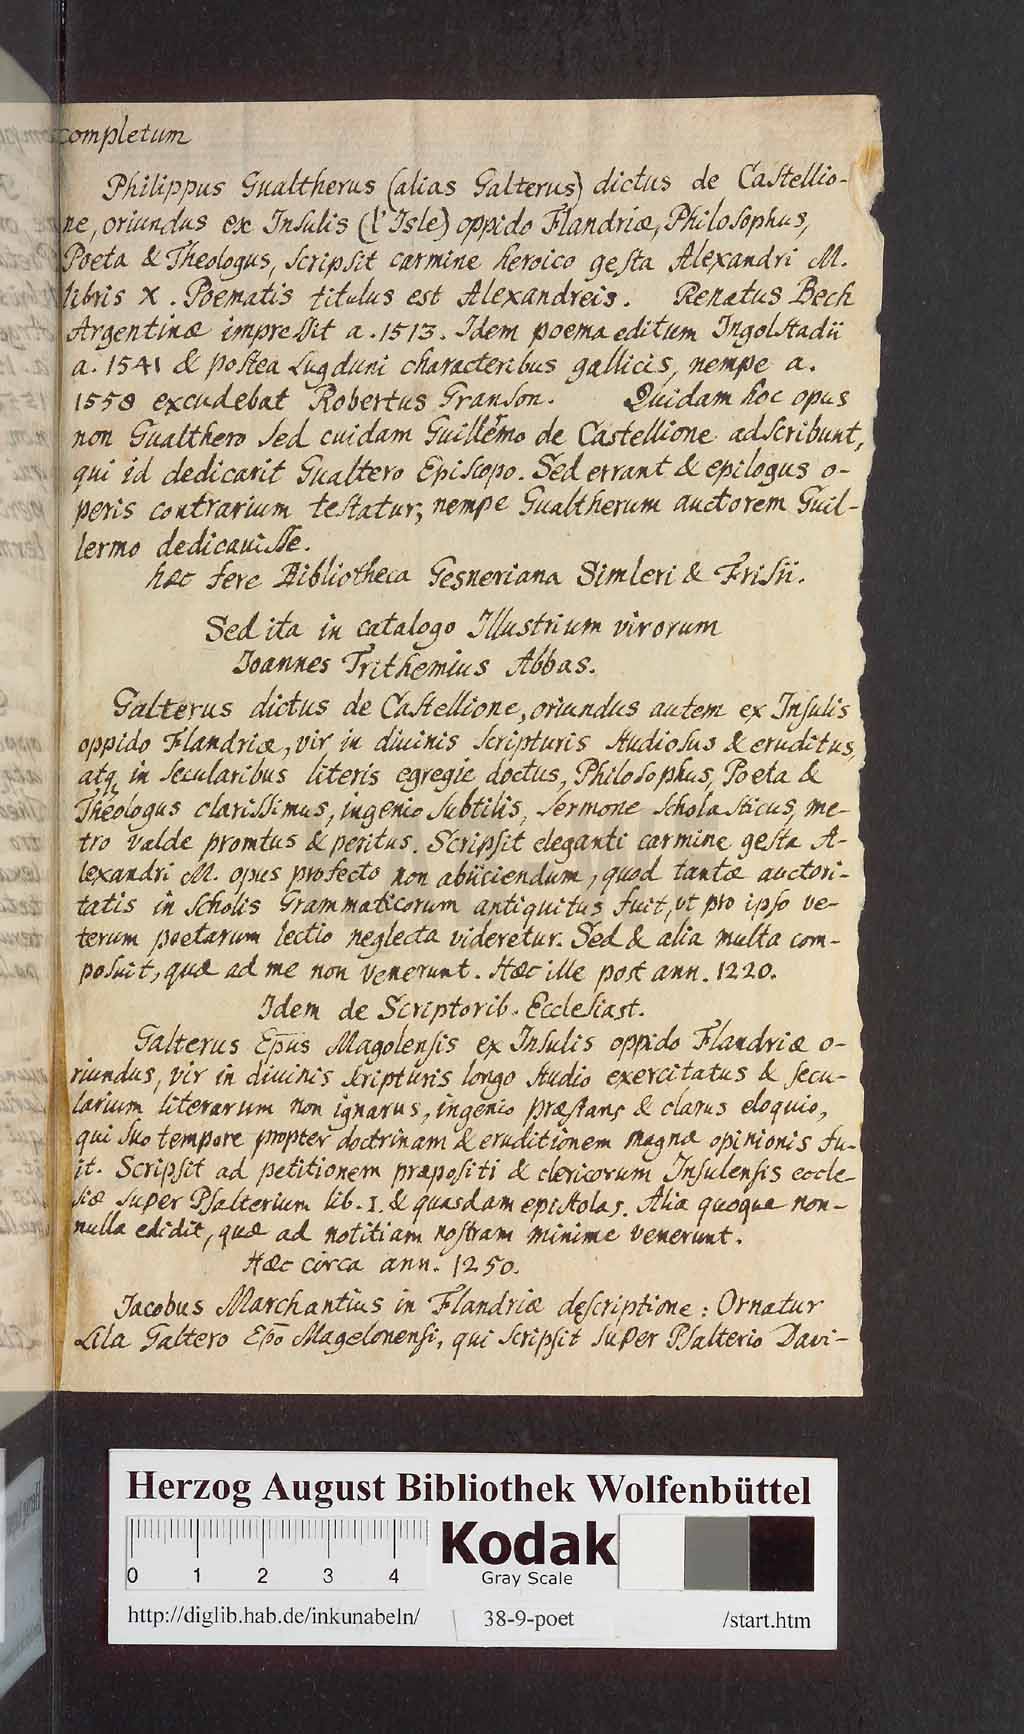 completum
Philippus Gualtherus (alias Galterus) dictus de Castellio-
ne, oriundus ex Insulis (l'Isle) oppido Flandriæ, Philosophus,
Poeta & Theologus, scripsit carmine heroico gesta Alexandri M.
libris X. Poematis titulus est Alexandreis. Renatus Bech
Argentinæ impressit a. 1513. Idem poema editum Ingolstadii
a. 1541 & postea Lugduni characteribus gallicis, nempe a.
1558 excudebat Robertus Granson. Quidam hoc opus
non Gualthero sed cuidam Guillermo de Castellione adscribunt,
qui id dedicarit Gualtero Episcopo. Sed errant & epilogus o-
peris contrarium testatur; nempe Gualtherum auctorem Guil-
lermo dedicauisse.
hæc fere Bibliotheca Gesneriana Simleri & Frisii.
Sed ita in catalogo Illustrium virorum
Joannes Trithemius Abbas.
Galterus dictus de Castellione, oriundus autem ex Insulis
oppido Flandriæ, vir in diuinis scripturis studiosus & eruditus,
atq in secularibus literis egregie doctus, Philosophus, Poeta &
Theologus clarissimus, ingenio subtilis, sermone scholasticus, me-
tro valde promtus & peritus. Scripsit eleganti carmine gesta A-
lexandri M. opus profecto non abiiciendum, quod tantæ auctori-
tatis in scholis Grammaticorum antiquitus fuit, vt pro ipso ve-
terum poetarum lectio neglecta videretur. Sed & alia multa com-
posuit, quæ ad me non venerunt. Hæc ille post ann. 1220.
Idem de Scriptorib. Ecclesiast.
Galterus Ep̄us Magolensis ex Insulis oppido Flandriæ o-
riundus, vir in diuinis scripturis longo studio exercitatus & secu-
larium literarum non ignarus, ingenio præstans & clarus eloquio,
qui suo tempore propter doctrinam & eruditionem magnæ opinionis fu-
it. Scripsit ad petitionem præpositi & clericorum Insulensis eccle-
siæ super Psalterium lib. I. & quasdam epistolas. Alia quoque non-
nulla edidit, quæ ad notitiam nostram minime venerunt.
Hæc circa ann. 1250.
Jacobus Marchantius in Flandriæ descriptione: Ornatur
Lila Galtero Ep̄o Magelonensi, qui scripsit super Psalterio Davi-
Herzog August Bibliothek Wolfenbüttel
0 1 2 3 4
Kodak
Gray Scale
http://diglib.hab.de/inkunabeln/ 38-9-poet /start.htm